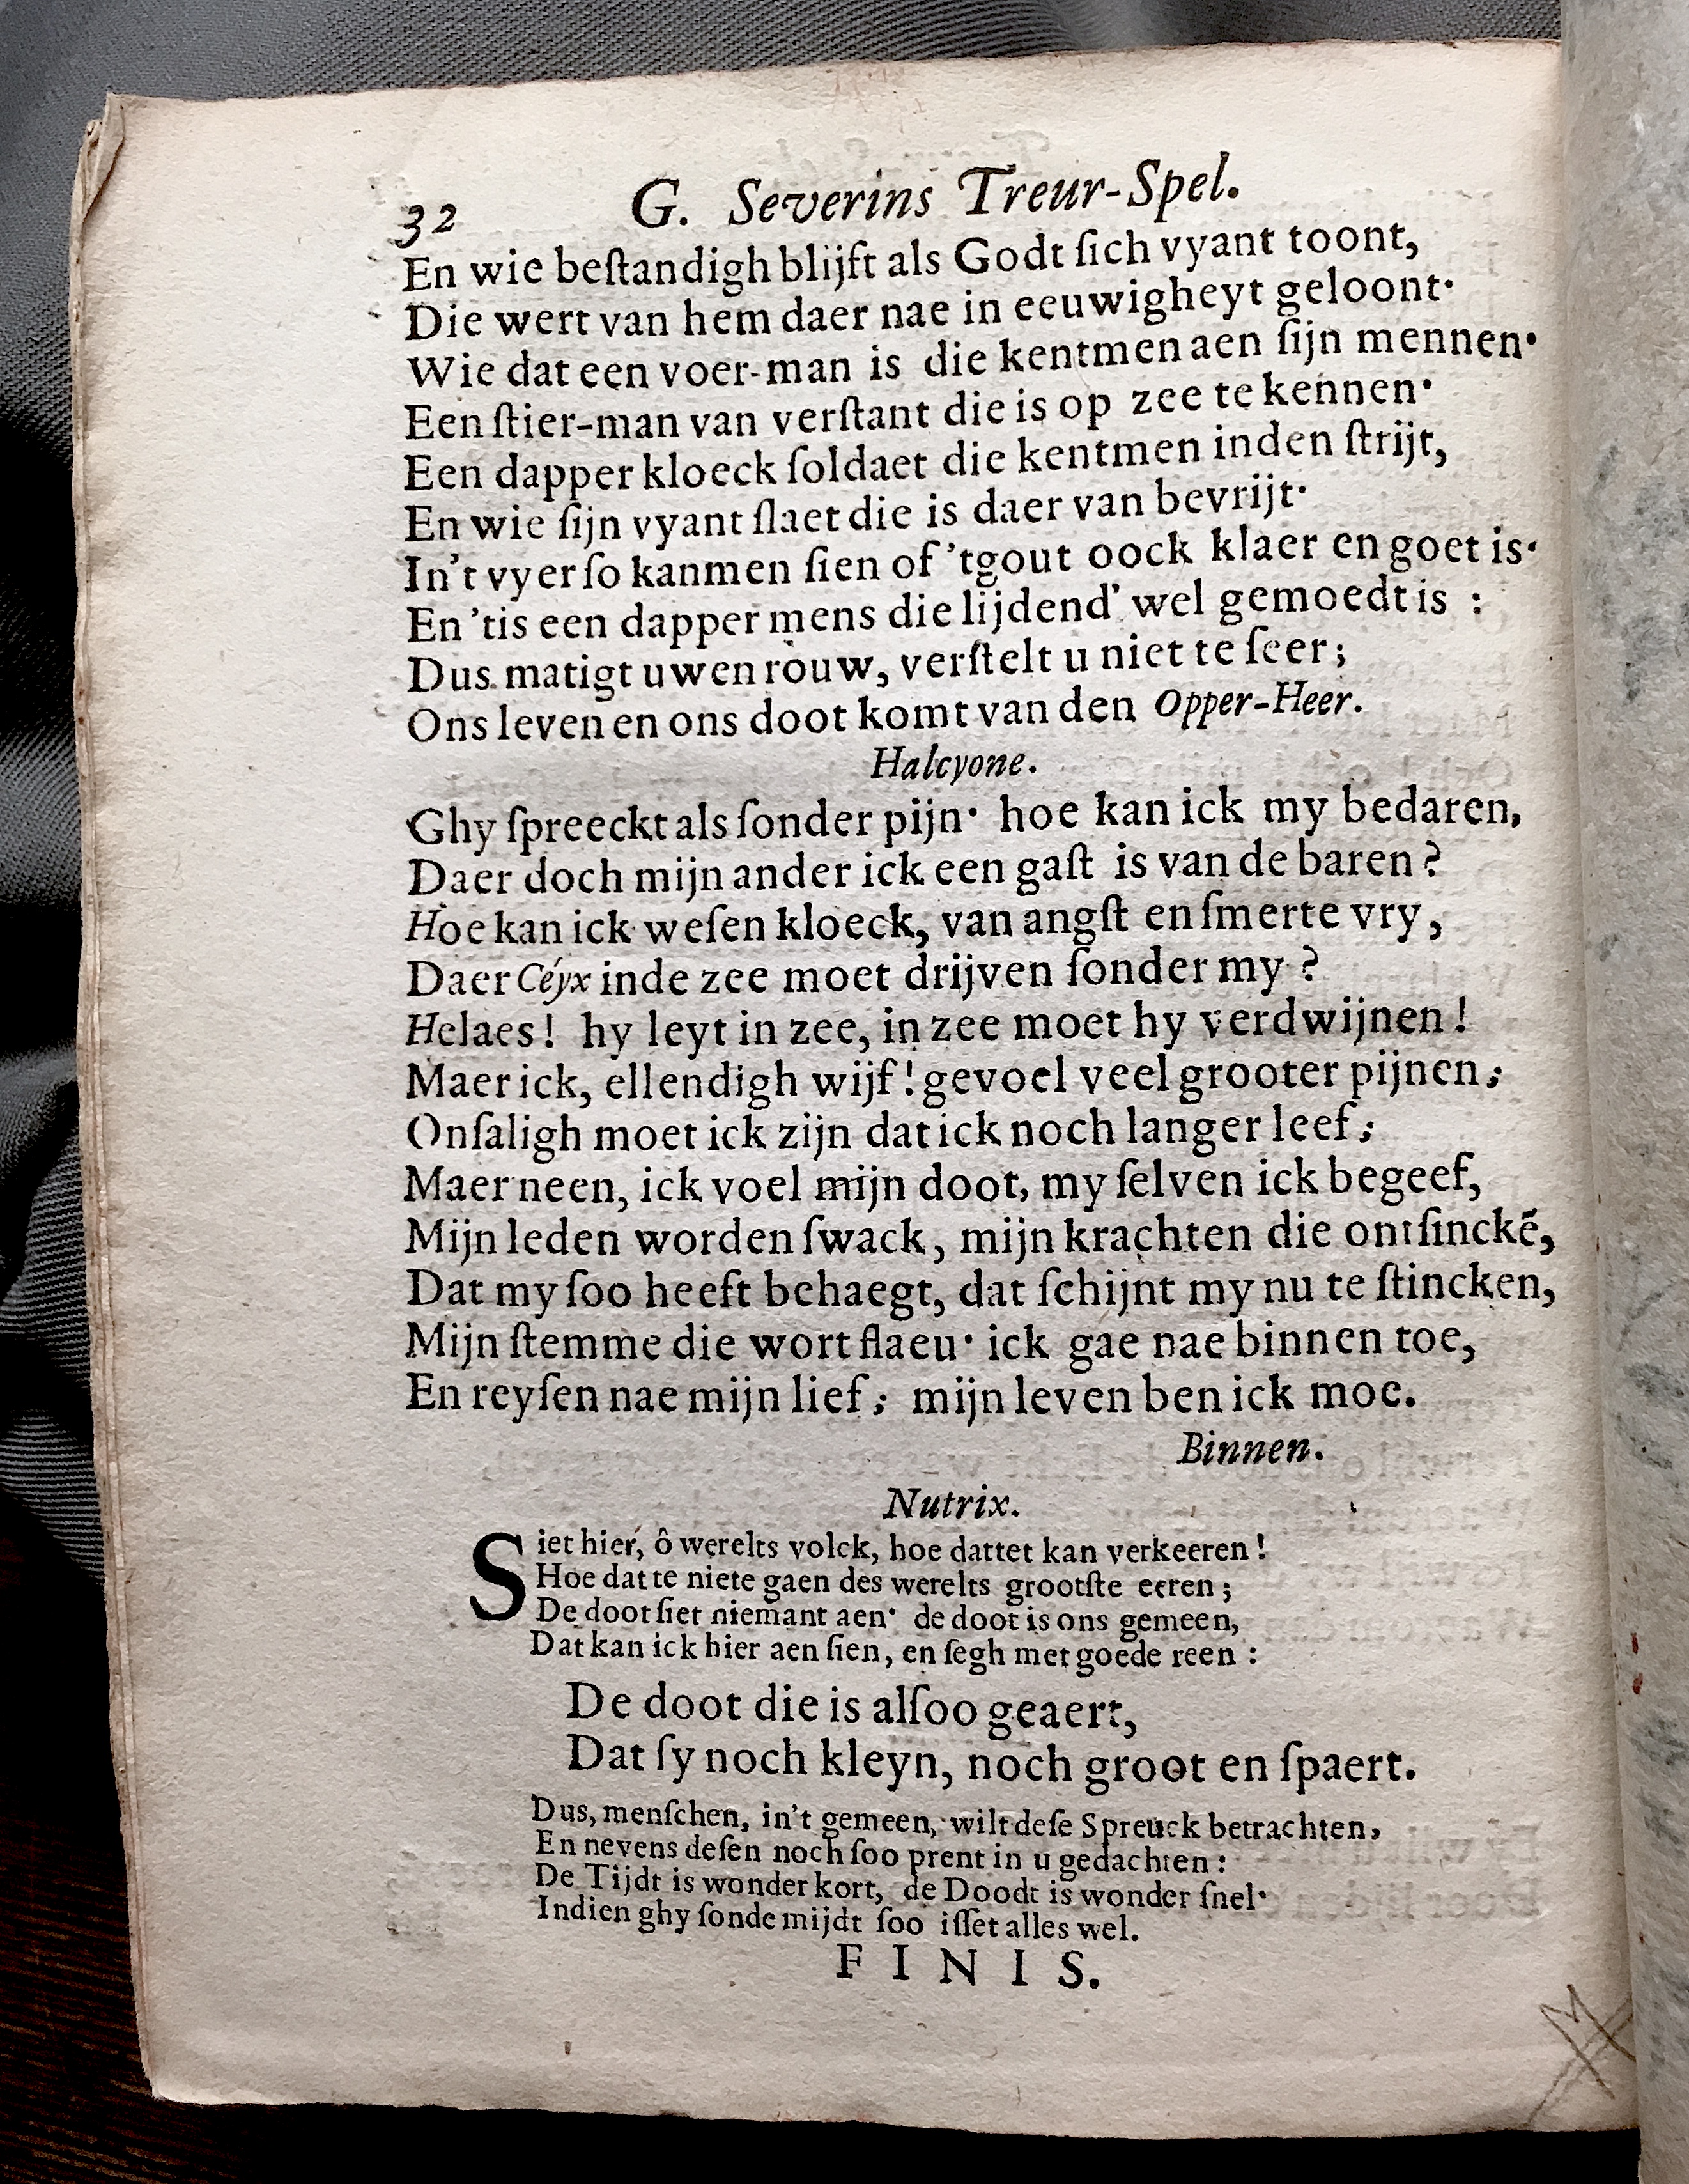 32 G. Severins Treur-Spel.
En wie beſtandigh blijft als Godt ſich vyant toont,
Die wert van hem daer nae in eeuwigheyt geloont·
Wie dat een voer-man is die kentmen aen ſijn mennen·
Een ſtier-man van verſtant die is op zee te kennen·
Een dapper kloeck ſoldaet die kentmen inden ſtrijt,
En wie ſijn vyant ſlaet die is daer van bevrijt·
In't vyer ſo kanmen ſien of 'tgout oock klaer en goet is·
En 'tis een dapper mens die lijdend' wel gemoedt is :
Dus matigt uwen rouw, verſtelt u niet te ſeer;
Ons leven en ons doot komt van den Opper-Heer.
Halcyone.
Ghy ſpreeckt als ſonder pijn· hoe kan ick my bedaren,
Daer doch mijn ander ick een gaſt is van de baren ?
Hoe kan ick weſen kloeck, van angſt en ſmerte vry,
Daer Céyx inde zee moet drijven ſonder my ?
Helaes! hy leyt in zee, in zee moet hy verdwijnen!
Maer ick, ellendigh wijf! gevoel veel grooter pijnen;
Onſaligh moet ick zijn dat ick noch langer leef;
Maer neen, ick voel mijn doot, my ſelven ick begeef,
Mijn leden worden ſwack, mijn krachten die ontſinckẽ,
Dat my ſoo heeft behaegt, dat ſchijnt my nu te ſtincken,
Mijn ſtemme die wort flaeu· ick gae nae binnen toe,
En reyſen nae mijn lief; mijn leven ben ick moe.
Binnen.
Nutrix.
Siet hier, ô werelts volck, hoe dattet kan verkeeren!
Hoe dat te niete gaen des werelts grootſte eeren;
De doot ſiet niemant aen· de doot is ons gemeen,
Dat kan ick hier aen ſien, en ſegh met goede reen :
De doot die is alſoo geaert,
Dat ſy noch kleyn, noch groot en ſpaert.
Dus, menſchen, in't gemeen, wilt deſe Spreuck betrachten,
En nevens deſen noch ſoo prent in u gedachten:
De Tijdt is wonder kort, de Doodt is wonder ſnel·
Indien ghy ſonde mijdt ſoo iſſet alles wel.
FINIS.